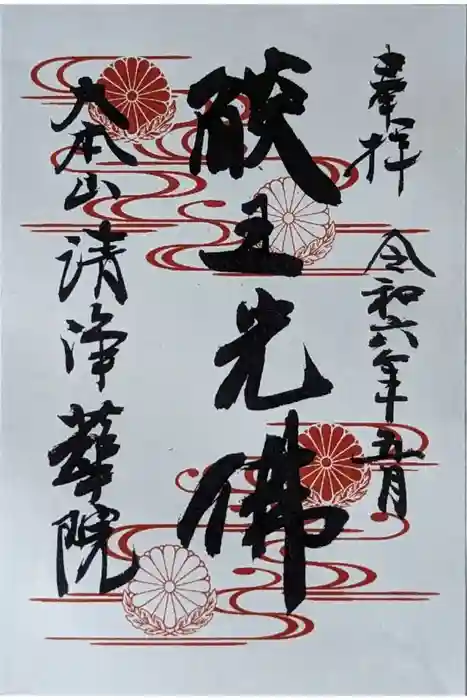 奉拝　令和六年五月
燄王光佛
大本山　清浄華院